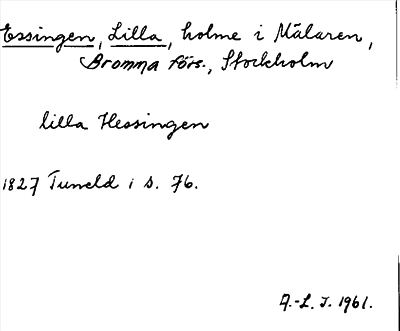 Essingen, Lilla, holme i Mälaren,
Bromma förs., Stockholm
lilla Hessingen
1827 Tuneld i s. 76.
A.-L. J. 1961.